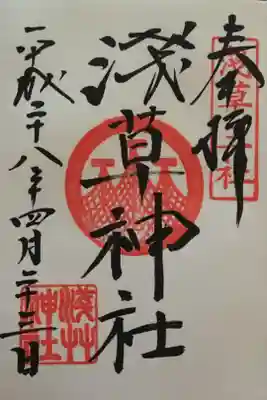 奉拝
浅草神社
浅草神社
平成二十八年四月二十三日
浅草神社